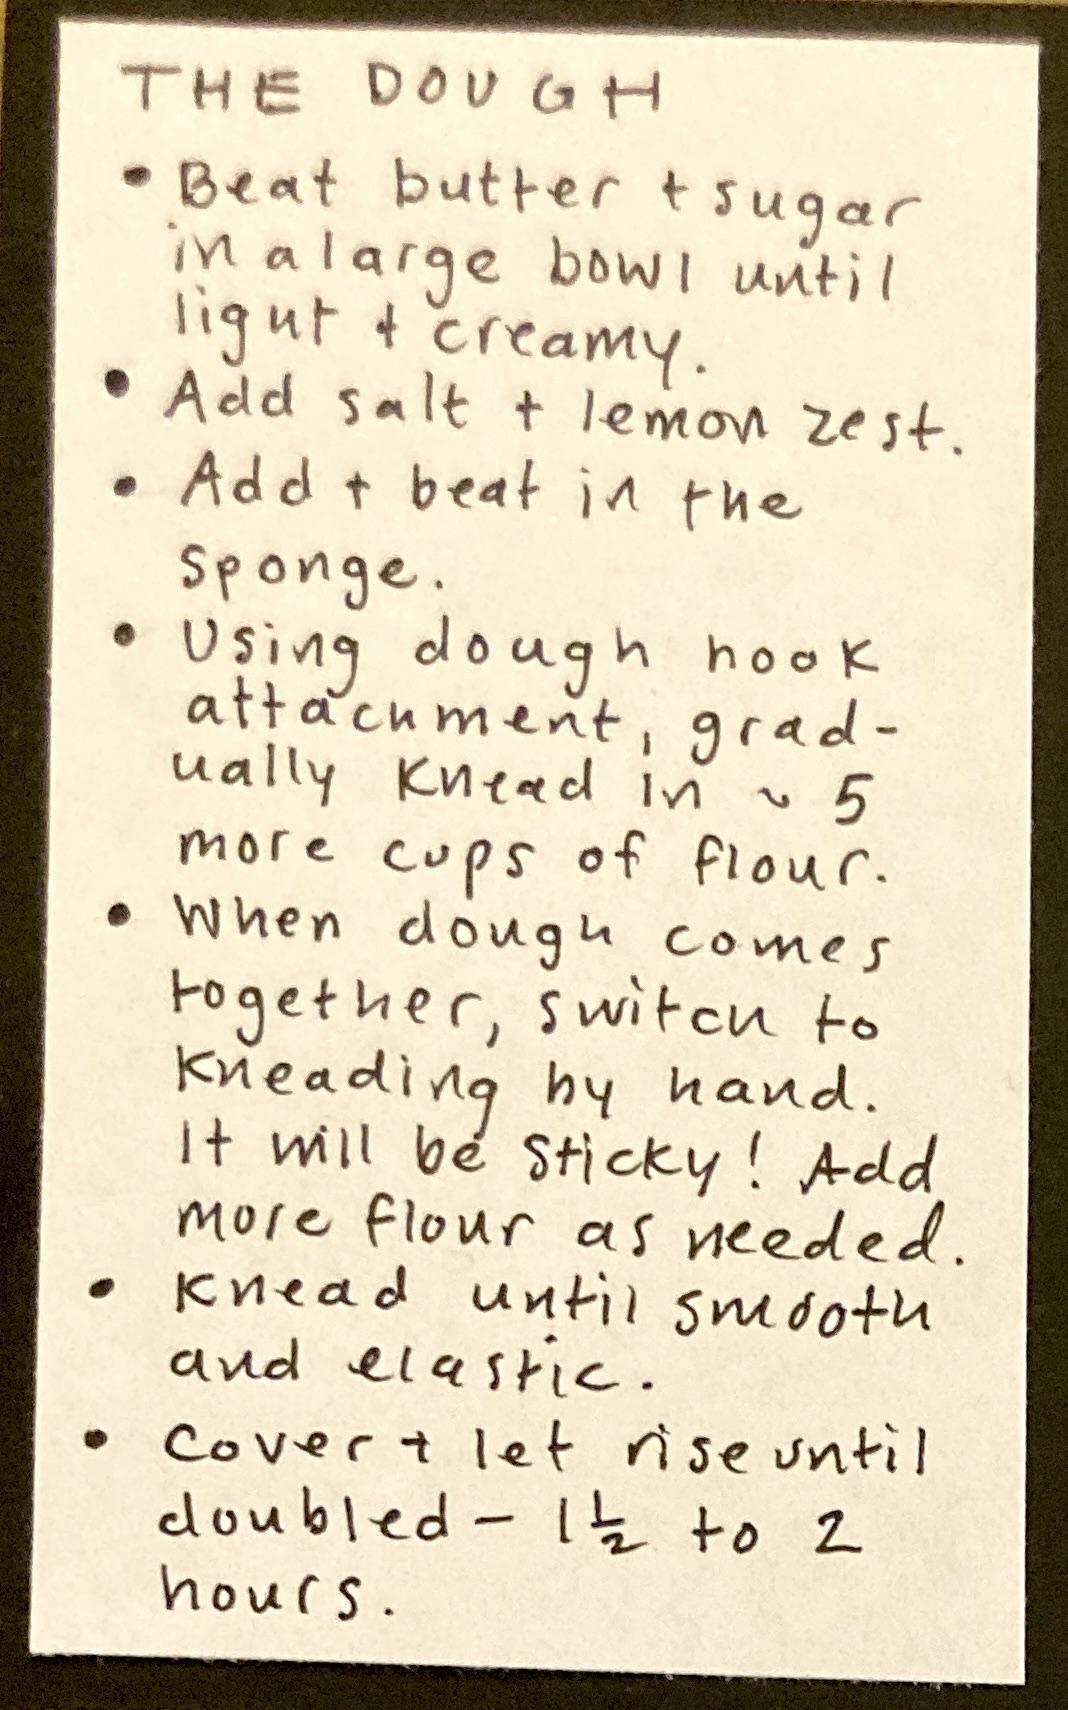 THE DOUGH
• Beat butter + sugar
in a large bowl until
light + creamy.
• Add salt + lemon zest.
• Add + beat in the
sponge.
• Using dough hook
attachment, grad-
ually knead in ~ 5
more cups of flour.
• When dough comes
together, switch to
kneading by hand.
It will be sticky! Add
more flour as needed.
• Knead until smooth
and elastic.
• Cover + let rise until
doubled - 1 1/2 to 2
hours.